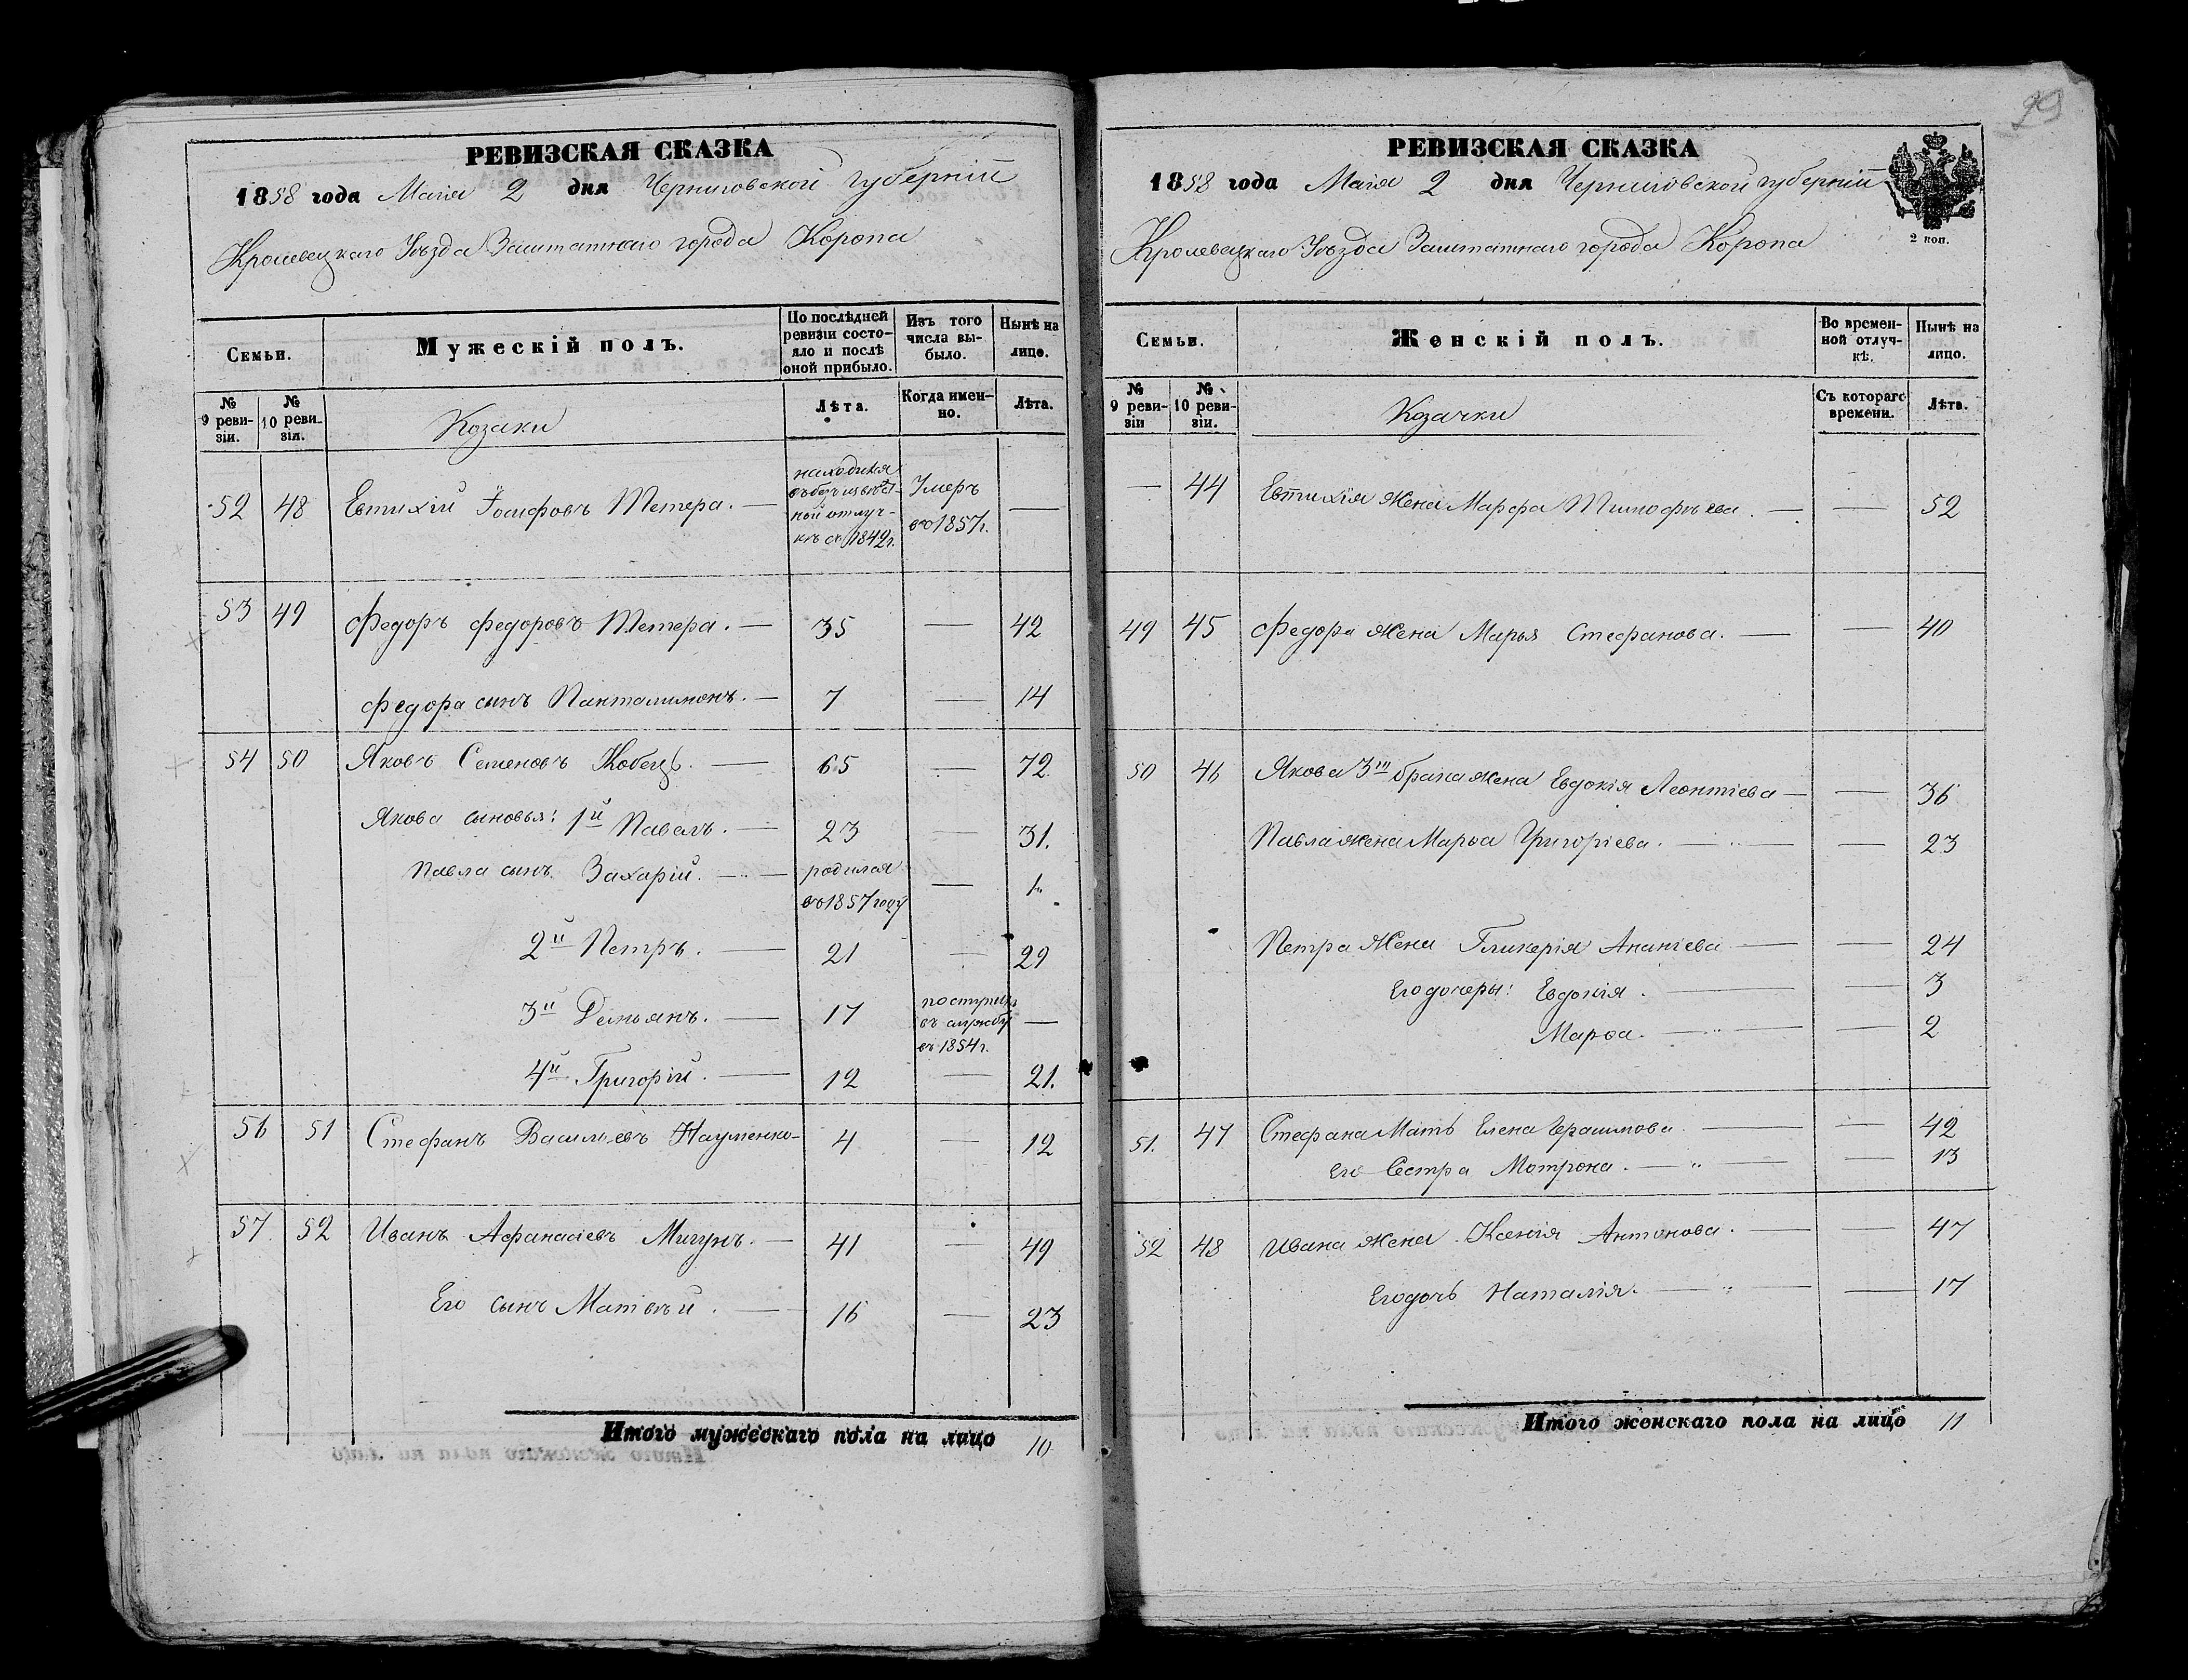 29
РЕВИЗСКАЯ СКАЗКА
1858 года Маія 2 дня Черниговской губерніи
Кролевецкаго Уѣзда Заштатнаго города Коропа
Семьи. Мужескій полъ. По послѣдней ревизіи состояло и послѣ оной прибыло. Изъ того числа выбыло. Нынѣ на лице.
№ 9 ревизіи. № 10 ревизіи. Козаки Лѣта. Когда именно. Лѣта.
52 48 Евтихій Іосифовъ Тетера. — находился въ безъизвѣстной отлучкѣ съ 1842г. Умеръ во 1857г. —
53 49 Федоръ Федоровъ Тетера. — 35 — 42
Федора сынъ Панталимонъ. — 7 — 14
54 50 Яковъ Семеновъ Кобецъ. — 65 — 72
Якова сыновья: 1й Павелъ. — 23 — 31.
Павла сынъ Захарій. — родился во 1857 году — 1.
2й Петръ. — 21 — 29
3й Демьянъ. — 17 поступилъ въ службу въ 1854г. —
4й Григорій. — 12 — 21.
56 51 Стефанъ Васильевъ Науменко — 4 — 12
57 52 Иванъ Афанасіевъ Мигунъ. — 41 — 49
Его сынъ Матвѣй. — 16 — 23
Итого мужескаго пола на лицо 10
РЕВИЗСКАЯ СКАЗКА
1858 года Маія 2 дня Черниговской губерніи
2 коп.
Кролевецкаго Уѣзда Заштатнаго города Коропа
Семьи. Женскій полъ. Во временной отлучкѣ. Нынѣ на лицо.
№ 9 ревизіи № 10 ревизіи. Козачки Съ котораго времени. Лѣта.
— 44 Евтихія жена Марфа Тимофѣева. — — 52
49 45 Федора жена Марья Стефанова. — — 40
50 46 Якова 3го брака жена Евдокія Леонтіева — — 36
Павла жена Марѳа Григоріева. — — 23
Петра жена Гликерія Ананіева — — 24
Его дочеры: Евдокія. — — 3
Марѳа. — — 2
51. 47 Стефана Мать Елена Герасимова. — — 42
Его Сестра Мотрона. — — 13
52 48 Ивана жена Ксенія Антонова. — — 47
Его дочь Наталія. — — 17
Итого женскаго пола на лицо 11